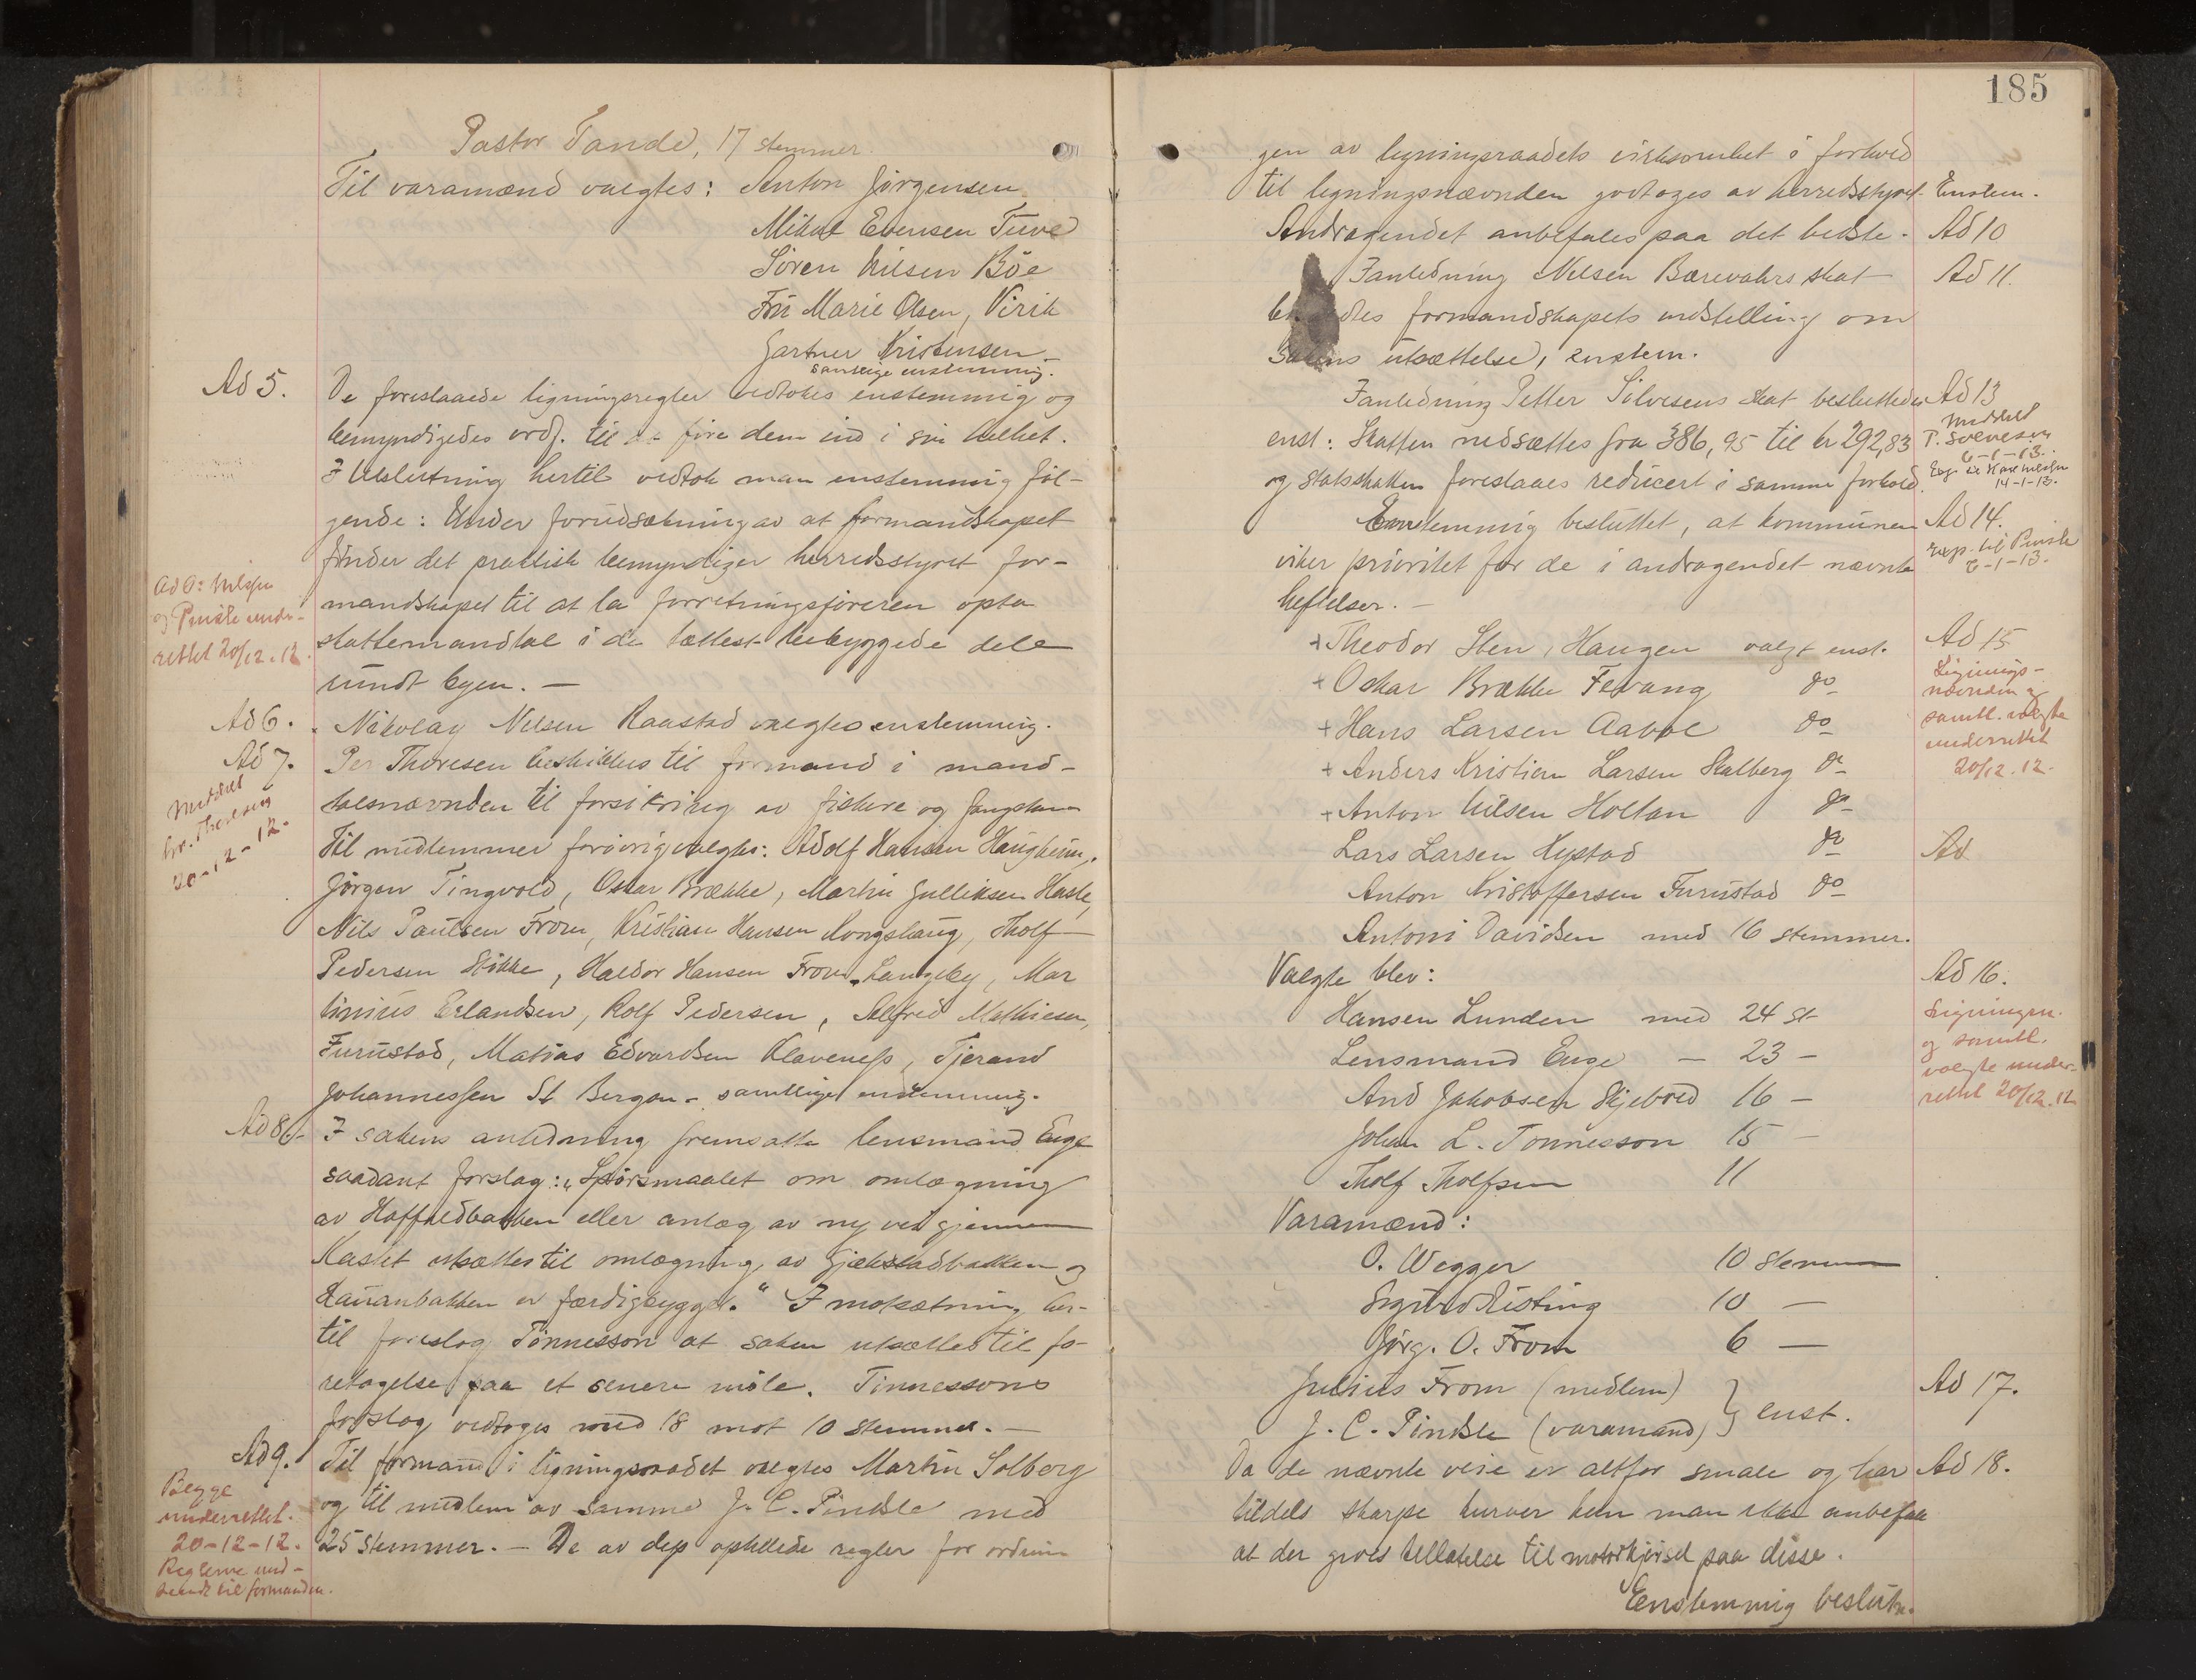 Pastor Tande, 17 stemmer
Til varamænd valgtes: Anton Jørgensen
Mikal Evensen Tueve
Sören Nilsen Böe
Fru Marie Olsen, Virik
Gartner Kristensen –
samtlige enstemmig.
Ad 5.
De foreslaaede ligningsregler vedtokes enstemmig og
bemyndigedes ordf. til at före dem ind i sin helhet.
I tilslutning hertil vedtok man enstemmig föl-
gende: Under forudsætning av at formandskapet
finder det praktisk bemyndiger herredsstyret for-
mandskapet til at la forretningsföreren opta
skattemandtal i de tættest bebyggede dele
rundt byen. –
Ad 5: Nilsen
og Pindsle under-
rettet 20/12.12.
Ad 6.
Nikolay Nilsen Raastad valgtes enstemmig.
Ad 7.
Meddelt
hr. Thoresen
20-12-12.
Per Thoresen beskikkes til formand i mand-
talsnævnden til forsikring av fiskere og fangstmænd
Til medlemmer forövrig valgtes: Adolf Hansen Haugheim,
Jörgen Tingvold, Oskar Brække, Martin Gulliksen Hasle,
Nils Paulsen From, Kristian Hansen Kongshaug, Tholf
Pedersen Stökke, Haldor Hansen From, Langeby, Mar
tinius Erlandsen, Rolf Pedersen, Alfred Mathisen,
Furustad, Matias Edvardsen Klaveness, Tjerand
Johannessen St. Bergan – samtlige enstemmig.
Ad 8
I sakens anledning fremsatte lensmand Enge
saadant forslag: „Spörsmaalet om omlægning
av Haffnedbakken eller anlæg av ny vei gjennem
Kastet utsættes til omlægning av Gjekstadbakken og
Lauanbakken er færdigbygget." I motsætning her-
til foreslog Tönnesson at saken utsættes til fo-
retagelse paa et senere möte. Tönnessons
forslag vedtoges med 18 mot 10 stemmer. –
Ad 9.
Begge
underrettet.
20-12-12.
Reglerne ind-
sendt til formanden.
Til formand i ligningsraadet valgtes Martin Solberg
og til medlem av samme J. C. Pindsle med
25 stemmer. – De av dep opstillede regler for ordnin
185
gen av ligningsraadets virksomhet i forhold
til ligningsnævnden godtoges av herredsstyret. Enstem.
Andragendet anbefales paa det bedste. Ad 10
I anledning Nilsen Bærevahrs skat Ad 11.
formandskapets indstilling om
sakens utsættelse, enstem.
I anledning Petter Sölvesens skat besluttedes Ad 13
enst: Skatten nedsættes fra 386,95 til kr 292,83
og statsskatten foreslaaes reducert i samme forhold.
Meddelt
P. Sölvesen
6-1-13.
14-1-13.
Enstemmig besluttet, at kommunen Ad 14.
viker prioritet for de i andragendet nævnte
heftelser. –
Exp. til Pindsle
6-1-13.
+ Theodor Sten, Haugen valgt enst. Ad 15
+ Oskar Brække Fevang do
+ Hans Larsen Aavol do
+ Anders Kristian Larsen Skalberg do
+ Anton Nilsen Holtan do
Lars Larsen Hystad do Ad
Anton Kristoffersen Furustad do
Antoni Davidsen med 16 stemmer.
Lignings-
nævnden og
samtl. valgte
underrettet
20/12.12.
Valgte blev: Ad 16.
Hansen Lunden med 24 st
Lensmand Enge – 23 –
And Jakobsen Skjelbred 16 –
Johan L. Tonnesson 15 –
Tholf Tholfsen 11
Ligningen.
og samtl.
valgte under-
rettet 20/12.12
Varamænd:
O. Wegger 10 stemmer
Sigurd Risting 10 –
Jörg. O. From 6 –
Julius From (medlem) } Ad 17.
J. C. Pindsle (varamand) } enst.
Da de nævnte veie er altfor smale og har Ad 18.
tildels skarpe kurver kan man ikke anbefale
at der gives tillatelse til motorkjörsel paa disse.
Enstemmig beslutn.